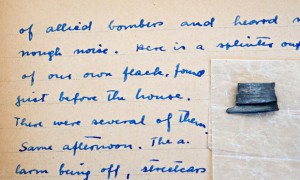 of allied bombers and heared
nough noise. Here is a splinter
of our own flack. found
just before the house.
There were several of them
Same afternoon. The a-
larm being off, streetcars